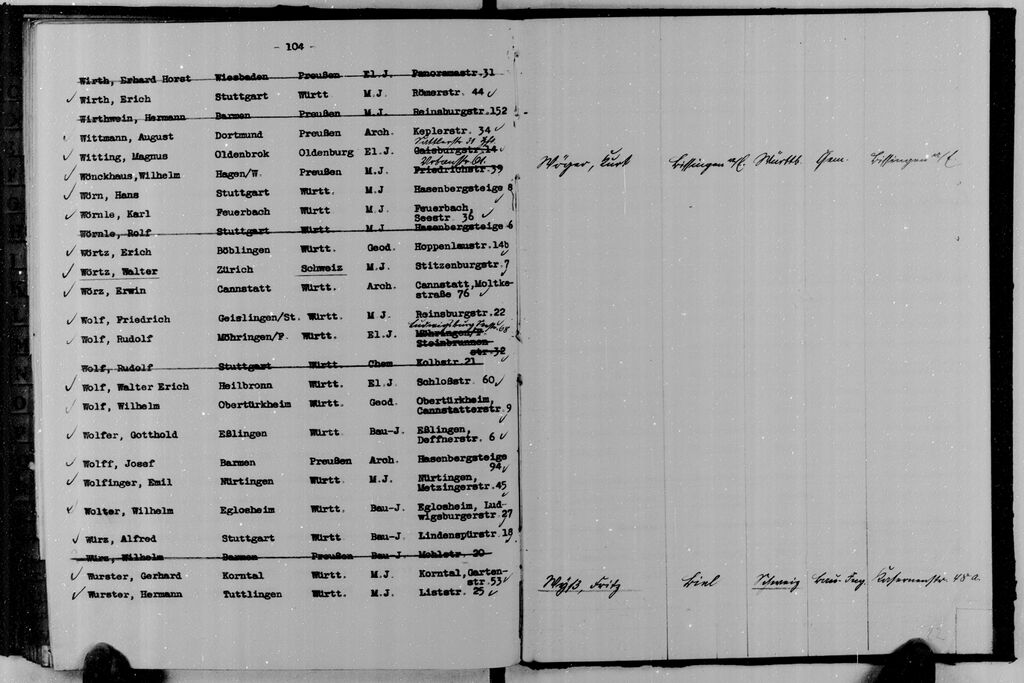 - 104 -
Wirth, Erhard Horst Wiesbaden Preußen El.J. Panoramastr.31
Wirth, Erich Stuttgart Württ M.J. Römerstr. 44
Wirthwein, Hermann Barmen Preußen M.J. Reinsburgstr.152
Wittmann, August Dortmund Preußen Arch. Keplerstr. 34
Witting, Magnus Oldenbrok Oldenburg El.J. Gaisburgstr.14
Wönckhaus,Wilhelm Hagen/W. Preußen M.J. Friedrichstr.39
Wörn, Hans Stuttgart Württ. M.J Hasenbergsteige 8
Wörnle, Karl Feuerbach Württ M.J. Feuerbach,
Seestr. 36
Wörnle, Rolf Stuttgart Württ. M.J Hasenbergsteige 6
Wörtz, Erich Böblingen Württ. Geod. Hoppenlaustr.14b
Wörtz, Walter Zürich Schweiz M.J. Stitzenburgstr.7
Wörz, Erwin Cannstatt Württ. Arch. Cannstatt,Moltke-
straße 76
Wolf, Friedrich Geislingen/St. Württ. M J. Reinsburgstr.22
Wolf, Rudolf Möhringen/F. Württ. El.J. Möhringen/F.
Steinbrunnen-
str.32
Wolf, Rudolf Stuttgart Württ Chem Kolbstr.21
Wolf, Walter Erich Heilbronn Württ. El.J. Schloßstr. 60
Wolf, Wilhelm Obertürkheim Württ. Geod. Obertürkheim,
Cannstatterstr.9
Wolfer, Gotthold Eßlingen Württ Bau-J. Eßlingen,
Deffnerstr. 6
Wolff, Josef Barmen Preußen Arch. Hasenbergsteige
94
Wolfinger, Emil Nürtingen Württ. M.J. Nürtingen,
Metzingerstr.45
Wolter, Wilhelm Eglosheim Württ. Bau-J. Eglosheim, Lud-
wigsburgerstr.27
Würz, Alfred Stuttgart Württ Bau-J. Lindenspürstr.18
Würz, Wilhelm Barmen Preußen Bau-J. Mohlstr. 20
Wurster, Gerhard Korntal Württ. M.J. Korntal,Garten-
str.53
Wurster, Hermann Tuttlingen Württ. M.J. Liststr. 25
Wöger, Kurt Bissingen a/E. Württb. Bissingen a/E
Wyß, Fritz Biel Schweiz Bau-Ing Kasernenstr. 48 a.